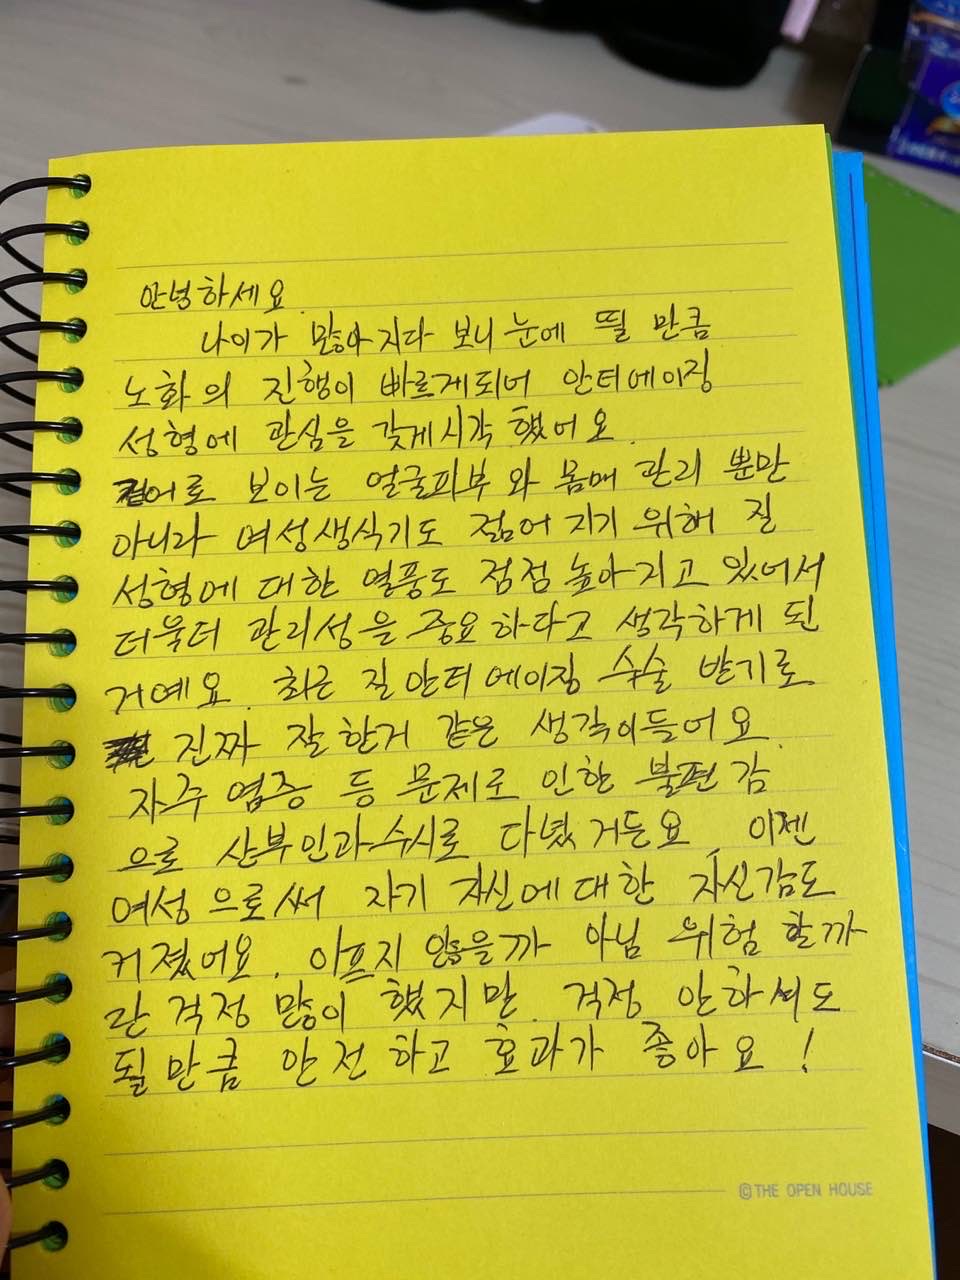 안녕하세요
나이가 많아지다 보니 눈에 띌 만큼
노화의 진행이 빠르게되어 안터에이징
성형에 관심을 갖게시작 했어요.
겉어로 보이는 얼굴피부와 몸매 관리 뿐만
아니라 여성생식기도 젊어지기 위해 질
성형에 대한 열풍도 점점 높아지고 있어서
더욱더 관리성을 중요하다고 생각하게 된
거예요. 최근 질안터에이징 수술 받기로
진짜 잘한거 같은 생각이들어요.
자주 염증 등 문제로 인한 불편감
으로 산부인과수시로 다녔거든요, 이젠
여성으로써 자기 자신에대한 자신감도
커졌어요. 아프지 않을까 아님 위험할까
란 걱정 많이 했지만. 걱정 안하셔도
될만큼 안전하고 효과가 좋아요!
©THE OPEN HOUSE